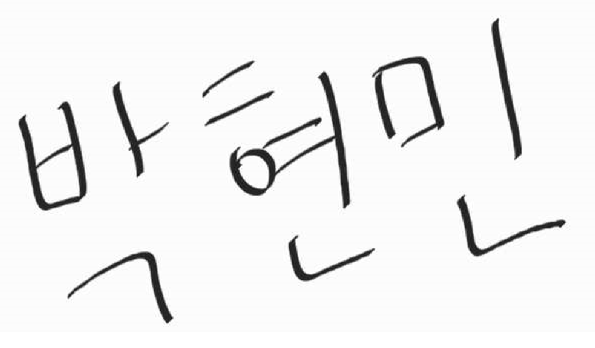 박현민